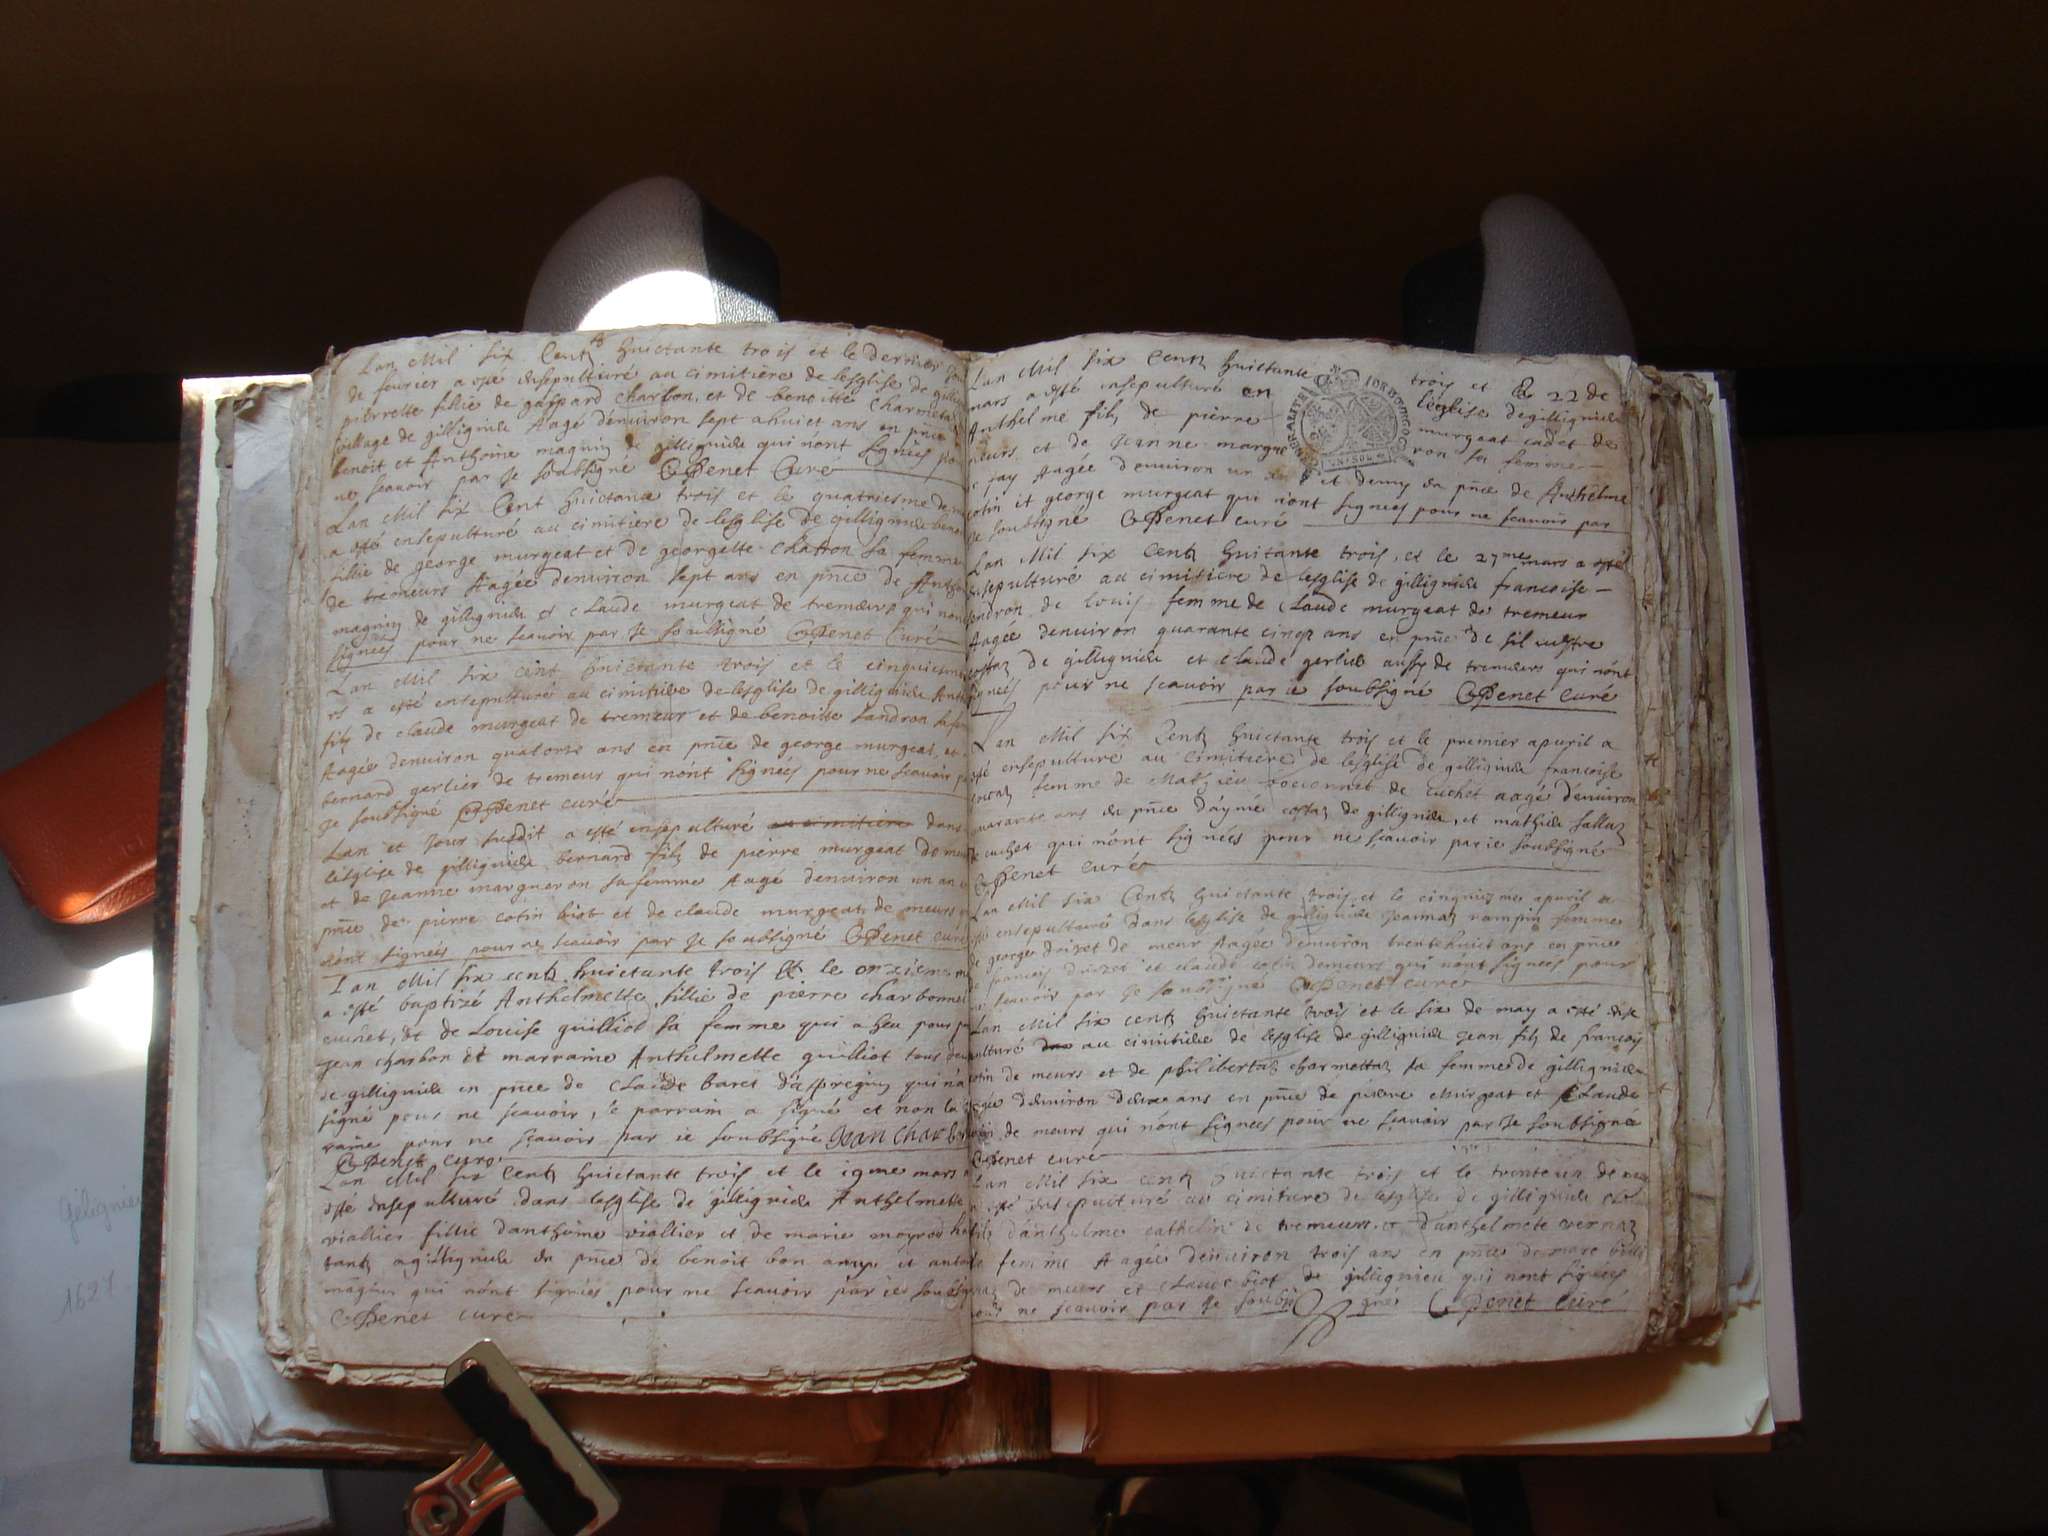 Lan Mil six Centz huictante trois et le dernier
de feurier a esté ensepulturé au cimitiere de lesglise de
pierrette fillie de gaspard charbon, et de benoitte charmetta
village de gillignieu Aagé denuiron sept a huict ans en pnce
benoit et Anthoine magnin de gillignieu qui nont signés po
ne scauoir par Je soubsigné CPenet Curé
Lan Mil six Cent huictante trois et le quatriesme de
a esté ensepulturé au cimitiere de lesglise de gillignieu
fillie de george murgeat et de georgette chatron sa femme
de tremeurs Aagée denuiron sept ans en pnce de
magnin de gillignieu et claude murgeat de tremeurs qui nont
signées pour ne scauoir par Je soubsigné CPenet Curé
Lan Mil six cent huictante trois et le cinquiesme
rs a esté ensepulturé au cimitiere de lesglise de gillignieu
filz de claude murgeat de tremeur et de benoitte landron
Aagée denuiron quatorse ans en pnce de george murgeat, et
bernard gerlier de tremeur qui nont signées pour ne scauoir
Je soubsigné CPenet curé
Lan et Jour susdit a esté ensepulturé au cimitiere dans
lesglise de gillignieu bernard filz de pierre murgeat de
et de Jeanne margueron sa femme Aagé denuiron un an
pnce de pierre cotin biot et de claude murgeat de meurs
nont signées pour ne scauoir par Je soubsigné CPenet curé
Lan Mil six centz huictante trois et le onziesme
a esté baptizé Anthelmette fillie de pierre charbonnet
cuinet, et de Louise guilliot sa femme qui a heu pour
Jean charbon et marraine Anthelmette guilliot tous
de gillignieu en pnce de claude baret
signé pour ne scauoir, le parrain a signé et non la
raine pour ne scauoir par ie soubsigné Jean charbon
CPenet cure
Lan Mil six Centz huictante trois et le 19me mars
esté ensepulturé dans lesglise de gillignieu Anthelmette
viallier fillie danthoine viallier et de marie
tantz a gillignieu en pnce de benoit bon amy et
magnin qui nont signées pour ne scauoir par ie
CPenet cure
Lan Mil six Centz huictante trois et le 22 de
mars a esté ensepulturé en lesglise de gillignieu
Anthelme filz de pierre murgeat cadet de
meurs, et de Jeanne margueron sa femme
Aagée denuiron un an et demy en pnce de Anthelme
cotin et george murgeat qui nont signées pour ne scauoir par
Je soubsigné CPenet curé
Lan Mil six Centz huictante trois, et le 27me mars a esté
ensepulturé au cimitiere de lesglise de gillignieu francoise
landron de louis femme de claude murgeat de tremeur
Aagée denuiron quarante cinqz ans en pnce de siluestre
costaz de gillignieu et claude gerlier aussy de tremeurs qui nont
signées pour ne scauoir par ie soubsigné CPenet curé
Lan Mil six Centz huictante trois et le premier apuril a
esté ensepulturé au cimitiere de lesglise de gillignieu francoise
femme de Mathieu de cuchet aagé denuiron
quarante ans en pnce daymé costaz de gillignieu, et mathieu sallaz
de cuchet qui nont signées pour ne scauoir par ie soubsigné
CPenet curé
Lan Mil six Centz huictante trois et le cinquiesme apuril a
esté ensepulturé dans lesglise de gillignieu Jeannaz rampin femme
de george de meur Aagée denuiron trente huict ans en pnce
de francois et claude cotin de meurs qui nont signées pour
ne scauoir par Je soubsigné CPenet cure
Lan Mil six centz huictante trois et le six de may a esté
au cimitiere de lesglise de gillignieu Jean filz de francois
cotin de meurs et de philibertaz charmettaz sa femme de gillignieu
aagée denuiron deux ans en pnce de pierre Murgeat et Claude
cotin de meurs qui nont signees pour ne scauoir par Je soubsigné
CPenet curé
Lan Mil six centz huictante trois et le trenteun de
esté ensepulturé au cimitiere de lesglise de gillignieu
filz danthelme cathelin de tremeurs et danthelmete vernaz
femme Aagée denuiron trois ans en pnce de marc
de meurs et claude biot de gillignieu qui nont signées
pour ne scauoir par Je soubsigné CPenet Curé
1627